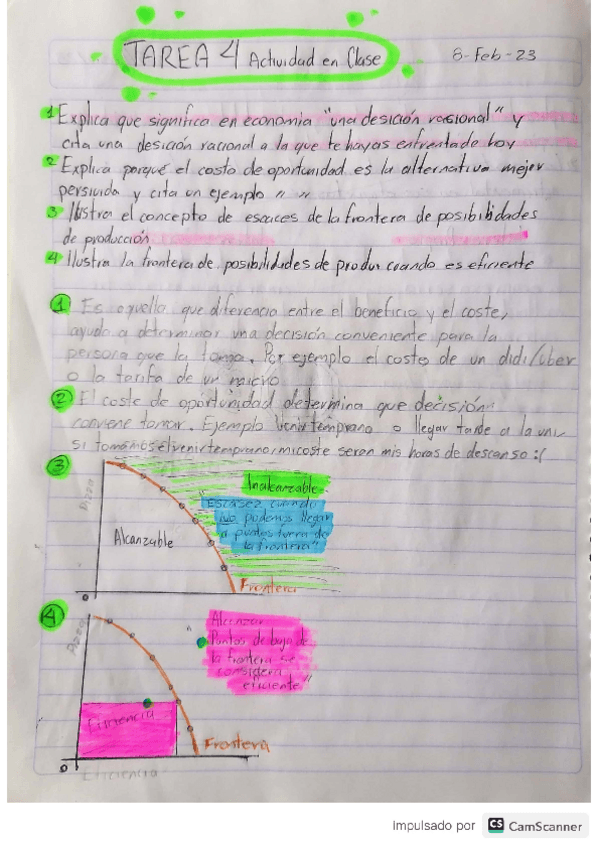 TAREA 4 Actividad en Clase 8-Feb-23
1 Explica que significa en economia "una desición racional" y
cita una desición racional a la que te hayas enfrentado hoy
2 Explica porqué el costo de oportunidad es la alternativa mejor
persivida y cita un ejemplo " "
3 Ilustra el concepto de escaces de la frontera de posibilidades
de producción
4 Ilustra la frontera de posibilidades de produx cuando es eficiente
1 Es aquella que diferencia entre el beneficio y el coste,
ayuda a determinar una decisión conveniente para la
persona que la toma. Por ejemplo el costo de un didi/uber
o la tarifa de un
2 El coste de oportunidad determina que decisión
conviene tomar. Ejemplo Venir temprano o llegar tarde a la uni
si tomamos el venir temprano, mi coste seran mis horas de descanso :(
3
Pizza
Inalcanzable
"Escasez cuando
no podemos llegar
a puntos fuera de
la frontera"
Alcanzable
Frontera
0
4
Alcanzar
"Puntos de bajo de
la frontera se
considera
eficiente"
Eficiencia
Frontera
0
Eficiencia
Impulsado por CS CamScanner